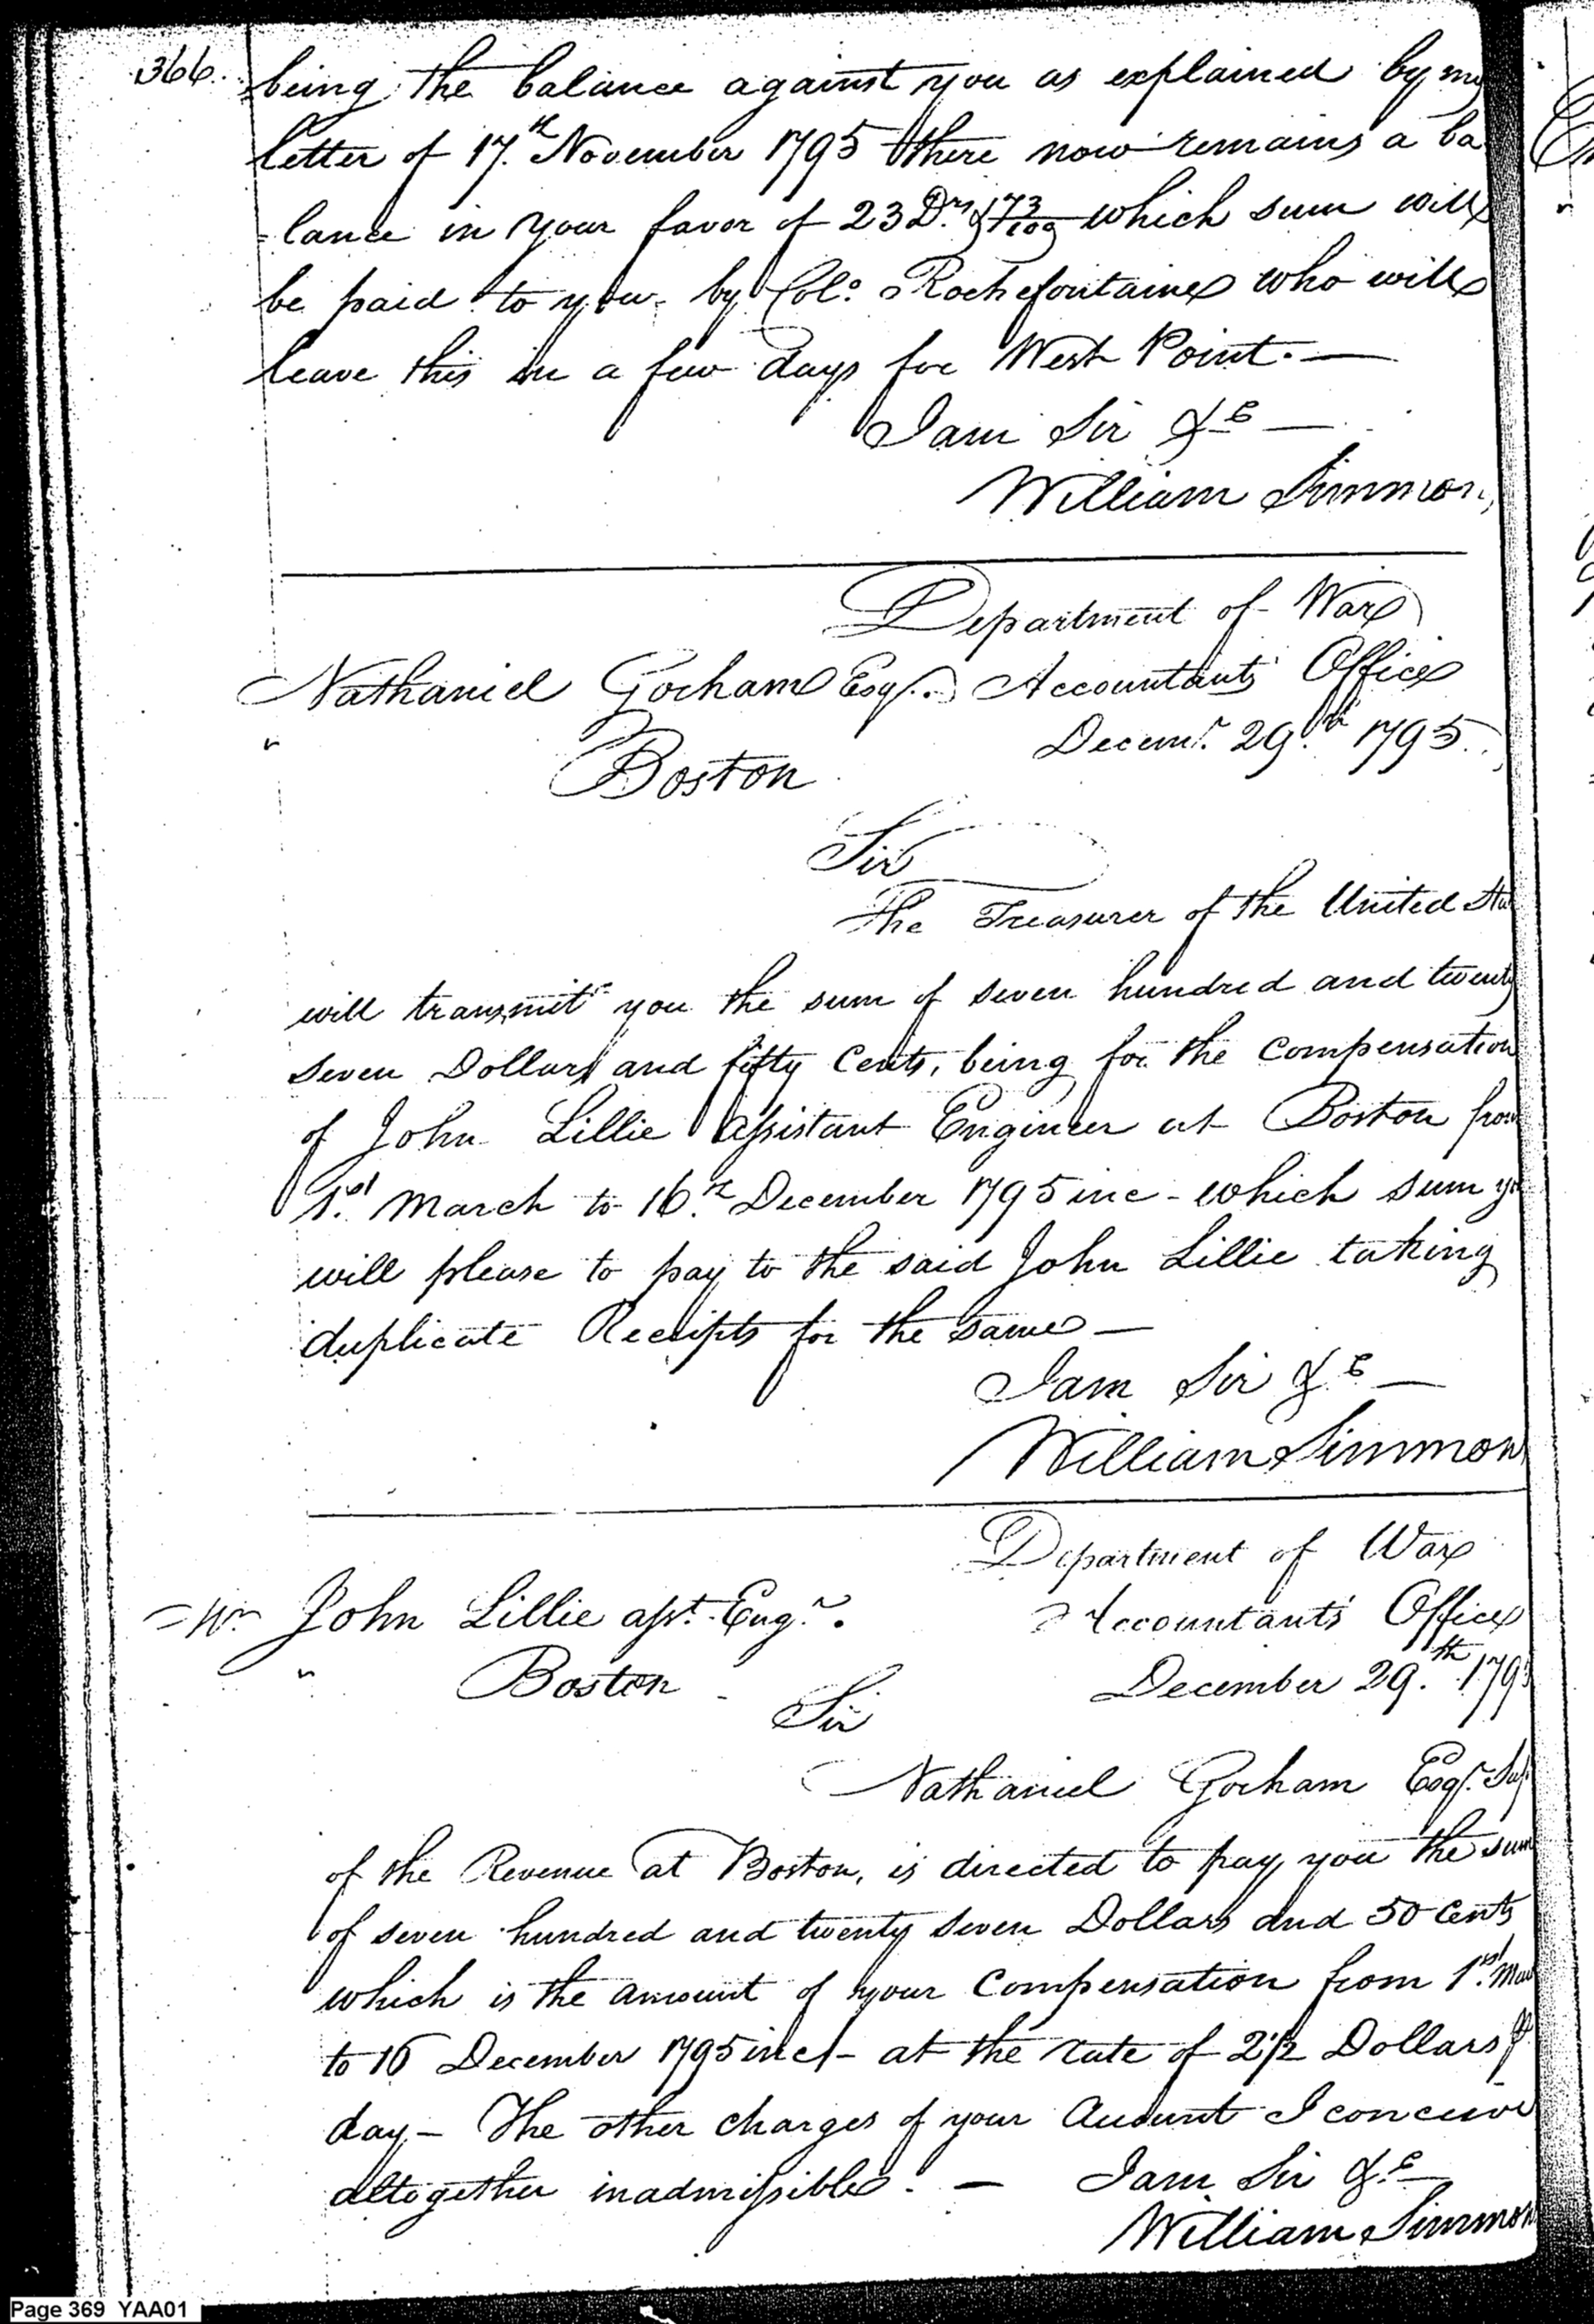 366.
being the balance against you as explained by my
letter of 17.th November 1795 there now remains a ba
=lance in your favor of 23 Drs & 73/100 which sum will
be paid to you by Colo. Rochefontaine who will
leave this in a few days for West Point. —
I am Sir &c —
William Simmons
Department of War
Nathaniel Gorham Esqr. Accountants Office
Decemr. 29.th 1795.
Boston
Sir
The Treasurer of the United Sta
will transmit you the sum of seven hundred and twenty
seven Dollars and fifty Cents, being for the Compensation
of John Lillie assistant Engineer at Boston from
1.st March to 16.th December 1795 inc - which sum yo
will please to pay to the said John Lillie taking
duplicate Receipts for the same —
I am Sir &c —
William Simmon
Department of War
John Lillie asst. Engr. Accountants Office
Boston December 29.th 179
Sir
Nathaniel Gorham Esqr. Sup
of the Revenue at Boston, is directed to pay you the sum
of seven hundred and twenty seven Dollars and 50 Cents
which is the amount of your Compensation from 1.st Mar
to 16 December 1795 incl - at the rate of 2 1/2 Dollars ⅌
day — The other charges of your Account I conceive
altogether inadmissible. — I am Sir &c
William Simmon
Page 369 YAA01